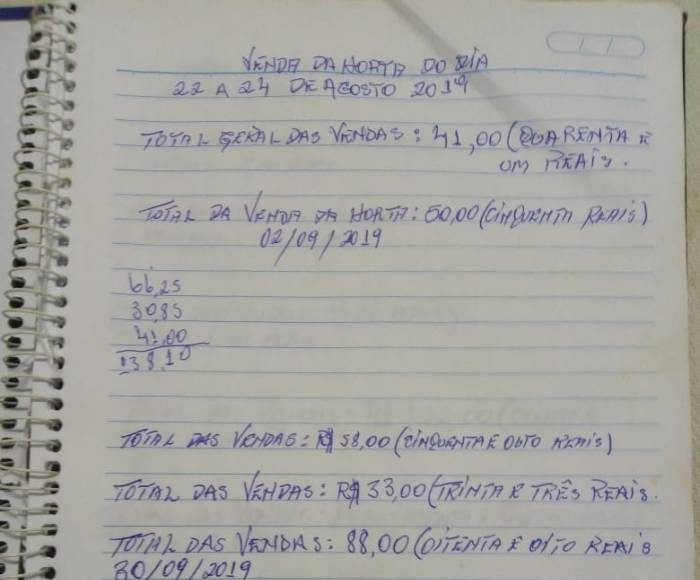 VENDA DA HORTA DO DIA
22 A 24 DE AGOSTO 2019
TOTAL GERAL DAS VENDAS: 41,00 (QUARENTA E
UM REAIS.
TOTAL DA VENDA DA HORTA: 50,00 (CINQUENTA REAIS)
02/09/2019
66,25
30,85
41,00
138,10
TOTAL DAS VENDAS: R$ 58,00 (CINQUENTA E OITO REAIS)
TOTAL DAS VENDAS: R$ 33,00 (TRINTA E TRÊS REAIS.
TOTAL DAS VENDAS: 88,00 (OITENTA E OITO REAIS
30/09/2019